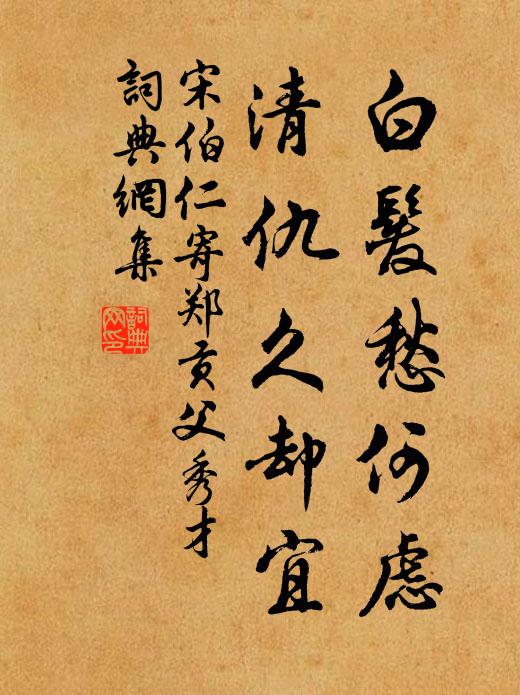 白髮愁何慮
清仇久却宜
宋伯仁寄郑贡父秀才
詞典網集
詞典網印